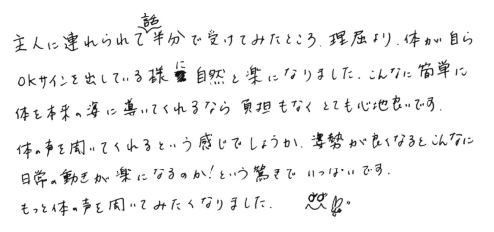 主人に連れられて話半分で受けてみたところ、理屈より、体が自ら
OKサインを出している様に自然と楽になりました。こんなに簡単に
体を本来の姿に導いてくれるなら負担もなくとても心地良いです。
体の声を聞いてくれるという感じでしょうか、姿勢が良くなるとこんなに
日常の動きが楽になるのか！という驚きでいっぱいです。
もっと体の声を聞いてみたくなりました。